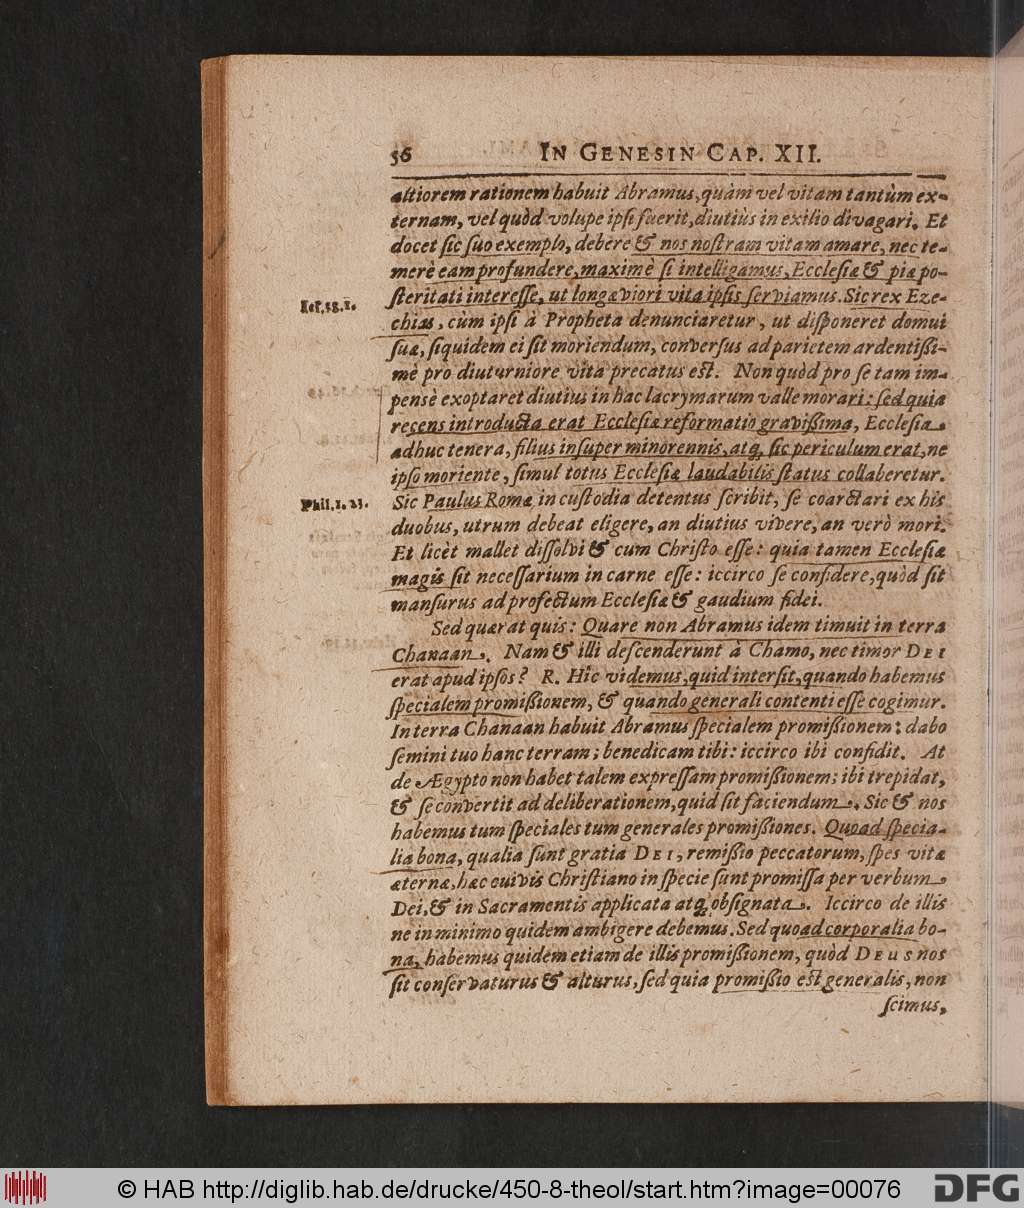 56 IN GENESIN CAP. XII.
altiorem rationem habuit Abramus, quàm vel vitam tantùm ex-
ternam, vel quòd volupe ipsi fuerit, diutiùs in exilio divagari. Et
docet sic suo exemplo, debere & nos nostram vitam amare, nec te-
merè eam profundere, maximè si intelligamus, Ecclesiæ & piæ po-
steritati interesse, ut longæviori vita ipsis serviamus. Sic rex Eze-
chias, cùm ipsi à Propheta denunciaretur, ut disponeret domui
suæ, siquidem ei sit moriendum, conversus ad parietem ardentißi-
mè pro diuturniore vita precatus est. Non quòd pro se tam im-
pensè exoptaret diutius in hac lacrymarum valle morari: sed quia
recens introducta erat Ecclesiæ reformatio gravißima, Ecclesia
adhuc tenera, filius insuper minorennis, atq; sic periculum erat, ne
ipso moriente, simul totus Ecclesiæ laudabilis status collaberetur.
Phil. 1. 23.
Sic Paulus Romæ in custodia detentus scribit, se coarctari ex his
duobus, utrum debeat eligere, an diutius vivere, an verò mori.
Et licèt mallet dissolvi & cum Christo esse: quia tamen Ecclesiæ
magis sit necessarium in carne esse: iccirco se confidere, quòd sit
mansurus ad profectum Ecclesiæ & gaudium fidei.
Sed quærat quis: Quare non Abramus idem timuit in terra
Chanaan. Nam & illi descenderunt à Chamo, nec timor DEI
erat apud ipsos? R. Hîc videmus, quid intersit, quando habemus
specialem promißionem, & quando generali contenti esse cogimur.
In terra Chanaan habuit Abramus specialem promißionem: dabo
semini tuo hanc terram; benedicam tibi: iccirco ibi confidit. At
de Ægypto non habet talem expressam promißionem; ibi trepidat,
& se convertit ad deliberationem, quid sit faciendum. Sic & nos
habemus tum speciales tum generales promißiones. Quoad specia-
lia bona, qualia sunt gratia DEI, remißio peccatorum, spes vitæ
æternæ, hæc cuivis Christiano in specie sunt promissa per verbum
Dei, & in Sacramentis applicata atq; obsignata. Iccirco de illis
ne in minimo quidem ambigere debemus. Sed quoad corporalia bo-
na, habemus quidem etiam de illis promißionem, quòd DEUS nos
sit conservaturus & alturus, sed quia promißio est generalis, non
scimus,
© HAB http://diglib.hab.de/drucke/450-8-theol/start.htm?image=00076
DFG